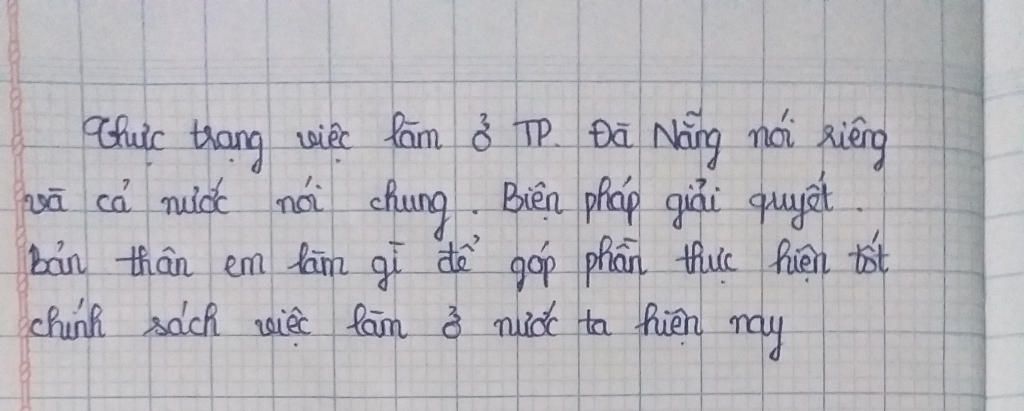 Thực trạng việc làm ở TP. Đà Nẵng nói riêng
và cả nước nói chung. Biện pháp giải quyết.
bản thân em làm gì để góp phần thực hiện tốt
chính sách việc làm ở nước ta hiện nay